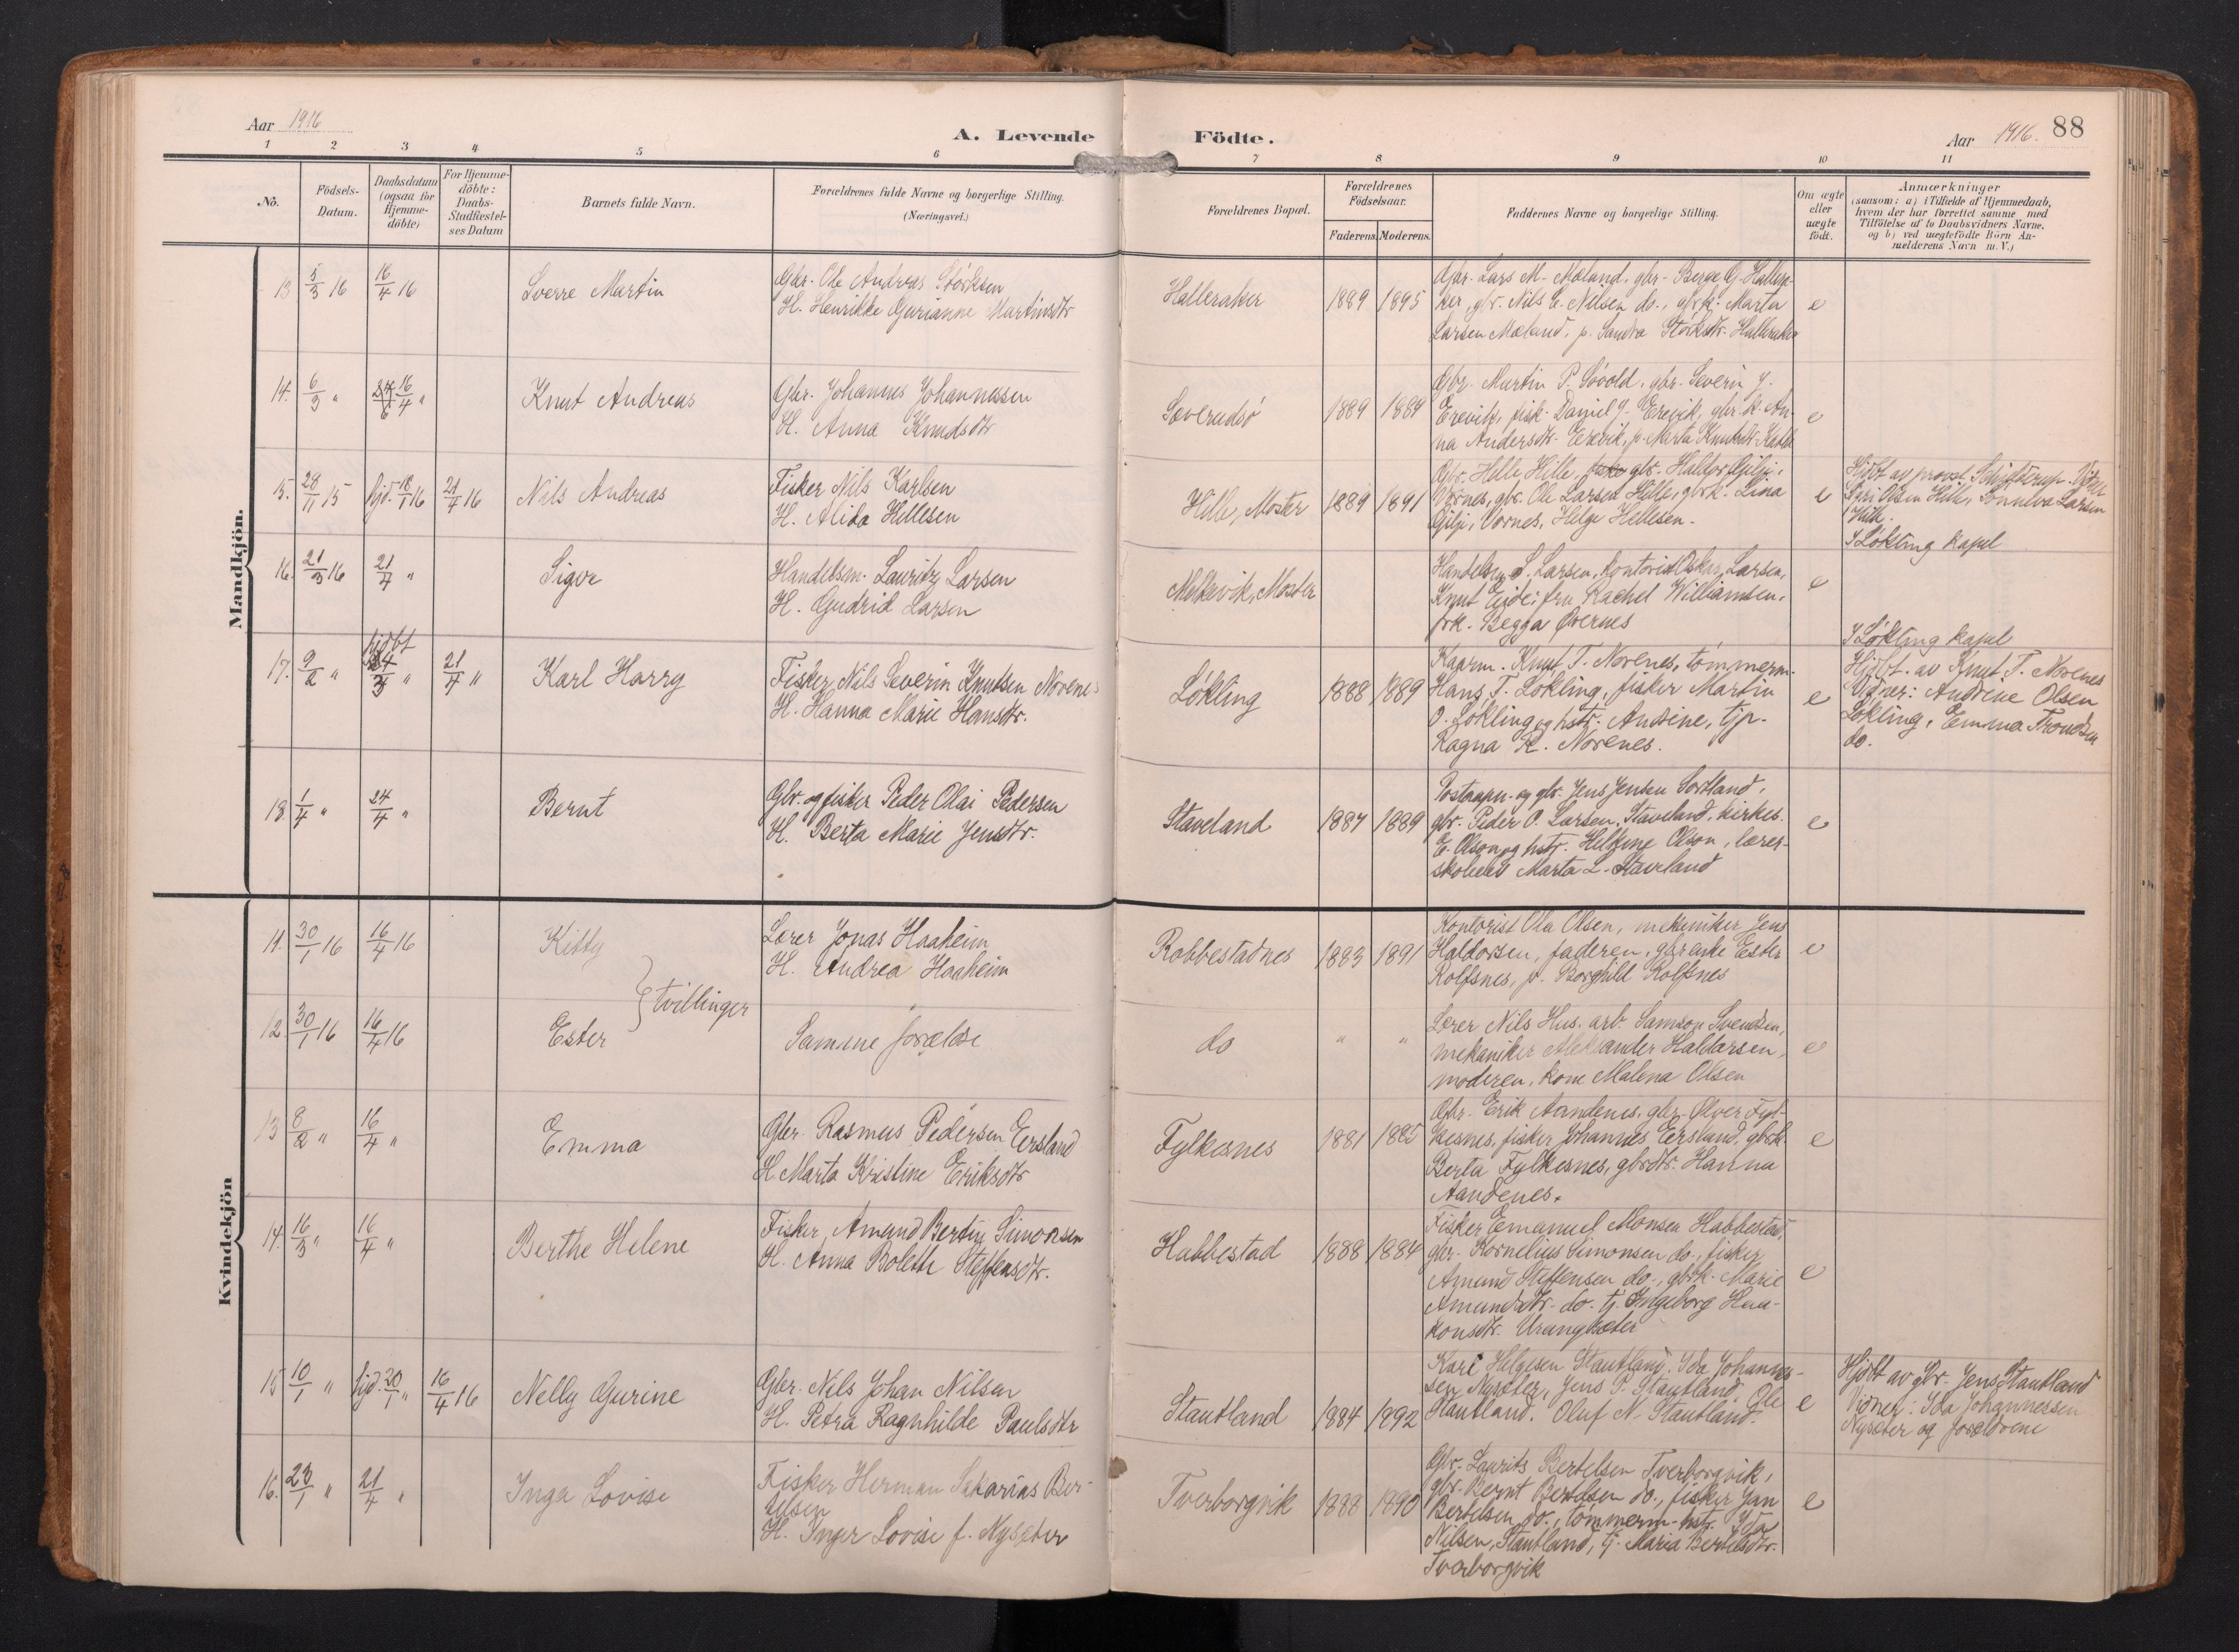 Aar 1916
A. Levende Födte.
Aar 1916. 88
1 2 3 4 5 6 7 8 9 10 11
No.
Födsels-Datum.
Daabsdatum (ogsaa for Hjemme-döbte)
For Hjemme-döbte: Daabs-Stadfæstel-ses Datum
Barnets fulde Navn.
Forældrenes fulde Navne og borgerlige Stilling.
(Næringsvei.)
Forældrenes Bopæl.
Forældrenes Födselsaar.
Faderens. Moderens.
Faddernes Navne og borgerlige Stilling.
Om ægte eller uægte födt.
Anmærkninger
(saasom: a) i Tilfælde af Hjemmedaab,
hvem der har forrettet samme med
Tilföielse af to Daabsvidners Navne,
og b) ved uægtefödte Börn An-
melderens Navn m. V.)
Mandkjön.
13 5/3 16 16/4 16 Sverre Martin
Gbr. Ole Andreas Størksen
H. Henrikke Gurianne Martinsdtr
Halleraker 1889 1895
Gbr. Lars M. Mæland, gbr. Berge G. Hallera-
ker, gbr. Nils E. Nilsen do., gbrk. Marta
Larsen Mæland, p. Sandra Størksdtr. Halleraker
e
14. 6/3 " 16/4 " Knut Andreas
Gbr. Johannes Johannessen
H. Anna Knudsdtr
1889 1884
Gbr. Martin P. Søvold, gbr. Severin J.
Erevik, fisk. Daniel J. Erevik, gbr.k. An-
na Andersdtr. Erevik, p. Marta Knutsdtr.
e
15. 28/11 15 hjd. 18/1 16 24/4 16 Nils Andreas
Fisker Nils Karlsen
H. Alida Hellesen
Hille, Moster 1889 1891
Gbr. Helle Hille, gbr. Haldor Gilje,
Vornes, gbr. Ole Larsen Hille, gbrk. Lina
Gilje, Vornes, Helge Hellesen.
e
Hjdbt av provst
Olsen Hille, Larsen
Hille.
16. 21/3 16 21/4 " Sigve
Handelsm. Lauritz Larsen
H. Gudrid Larsen
Melkevik, Moster
Handelsm. S. Larsen, kontorist Oskar Larsen,
Knut Eide, fru Rachel Williamsen,
frk. Begga Øvernes
e
I Løkling kapel
17. 9/2 " hjdbt 24/3 " 21/4 " Karl Harry
Fisker Nils Severin Knutsen Novenes
H. Hanna Marie Hansdtr.
Løkling 1888 1889
Kaarm. Knut T. Novenes, tømmerm.
Hans T. Løkling, fisker Martin
O. Løkling og hstr. Andine, tjp.
Ragna K. Novenes.
e
I Løkling kapel
Hjdbt. av Knut T. Novenes
Vidner: Andrine Olsen
Løkling, Emma Trondsen
do.
18. 1/4 " 24/4 " Bernt
Gbr. og fisker Peder Olai Pedersen
H. Berta Marie Jensdtr.
Staveland 1887 1889
Postaapn. og gbr. Jens Jensen Sortland,
gbr. Peder O. Larsen, Staveland, kirkes.
E. Olson og hstr. Helkine Olson, lærer-
skoleelev Marta L. Staveland
e
Kvindekjön
11. 30/1 16 16/4 16 Kitty
Lærer Jonas Haaheim
H. Andrea Haaheim
Robbestadnes 1883 1891
Kontorist Ola Olsen, mekaniker Jens
Haldorsen, faderen, gbrenke Ester
Rolfsnes, p. Borghild Rolfsnes
e
} tvillinger
12. 30/1 16 16/4 16 Ester
Samme forældre
do " "
Lærer Nils Hus, arb. Samson Svendsen,
mekaniker Aleksander Haldorsen,
moderen, kone Malena Olsen
e
13 8/2 " 16/4 " Emma
Gbr. Rasmus Pedersen Eersland
H. Marta Kristine Eriksdtr
Fylkesnes 1881 1885
Gbr. Erik Aandenes, gbr. Ølver Fyl-
kesnes, fisker Johannes Eersland, gbrk.
Berta Fylkesnes, gbrdtr. Hanna
Aandenes.
e
14. 16/3 " 16/4 " Berthe Helene
Fisker Amund Bertin Simonsen
H. Anna Bolette Steffensdtr.
Habbestad 1888 1884
Fisker Emanuel Monsen Habbestad,
gbr. Kornelius Simonsen do., fisker
Amund Steffensen do., gbrk. Marie
Amundsdtr. do. tj. Ingeborg Haa-
konsdtr. Urangsæter
e
15 10/1 " hjd. 20/1 " 16/4 16 Nelly Gurine
Gbr. Nils Johan Nilsen
H. Petra Ragnhilde Paulsdtr
Stautland 1884 1892
Kari Helgesen Stautland, Ida Johannes-
sen Nysæter, Jens P. Stautland, Ole
Stautland, Oluf N. Stautland.
e
Hjdbt av gbr. Jens Stautland
Vidner: Ida Johannessen
Nysæter og forældrene
16. 23/1 " 21/4 " Inga Lovise
Fisker Herman Sakarias Ber-
telsen
H. Inger Lovise f. Nysæter
Tverborgvik 1888 1890
Gbr. Laurits Bertelsen Tverborgvik,
gbr. Bernt Bertelsen do., fisker Jan
Bertelsen do., tømmerm. hstr. Ida
Nilsen, Stautland, tj. Maria Bertelsdtr.
Tverborgvik
e